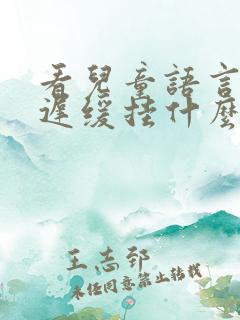 看兒童語言
遲緩挂什麽
王志郅
未經同意禁止轉載